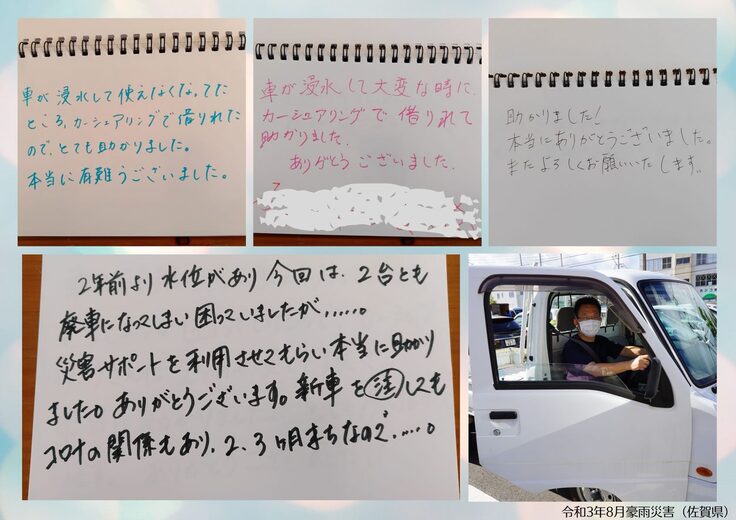 車が浸水して使えなくなってた
ところ、カーシェアリングで借りれた
ので、とても助かりました。
本当に有難うございました。
車が浸水して大変な時に、
カーシェアリングで借りれて
助かりました。
ありがとうございました。
助かりました!
本当にありがとうございました。
またよろしくお願いいたします。
2年前より水位があり今回は、2台とも
廃車になってしまい困っていましたが、.....
災害サポートを利用させてもらい本当に助かり
ました。ありがとうございます。新車を注しても
コロナの関係もあり、2、3ヶ月まちなので.....。
令和3年8月豪雨災害(佐賀県)